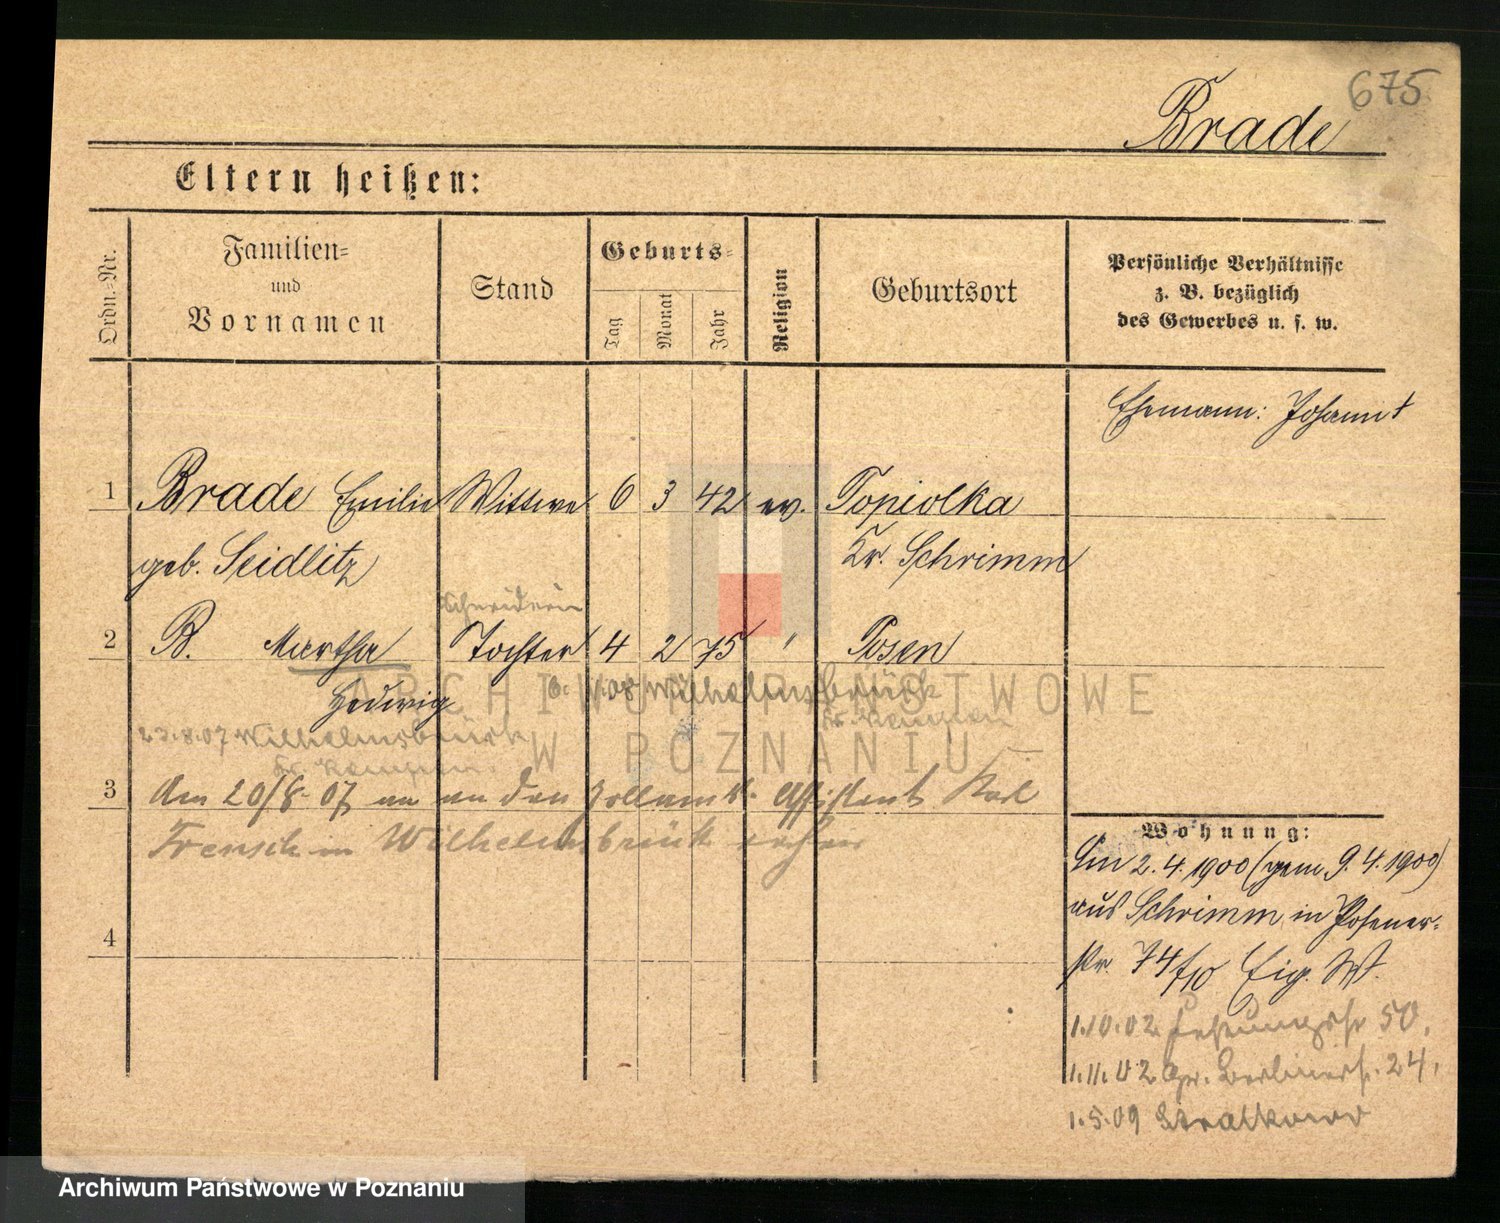 675
Brade
Eltern heißen:
Ordn.-Nr.
Familien-
und
Vornamen
Stand
Geburts-
Tag
Monat
Jahr
Religion
Geburtsort
Persönliche Verhältnisse
z. B. bezüglich
des Gewerbes u. s. w.
Ehemann: Johann †
1 Brade Emilie Wittwe 6 3 42 ev. Topiolka
geb. Seidlitz Kr. Schrimm
Schneiderin
2 B. Martha Tochter 4 2 75 " Posen
Hedwig
08 Wilhelmsbrück
Kr. Kempen
23.8.07 Wilhelmsbrück
Kr. Kempen
3 Am 20/8. 07 an den Zollamts Assistent Karl
Frensch in Wilhelmsbrück
4
Wohnung:
Am 2.4.1900 (gem 9.4.1900)
aus Schrimm, in Posener-
str. 74 Eig. W.
1.10.02 Festungsstr 50.
1.11.02 Gr. Berlinerstr. 24.
1.5.09 Stralkowo
ARCHIWUM PAŃSTWOWE
W POZNANIU
Archiwum Państwowe w Poznaniu